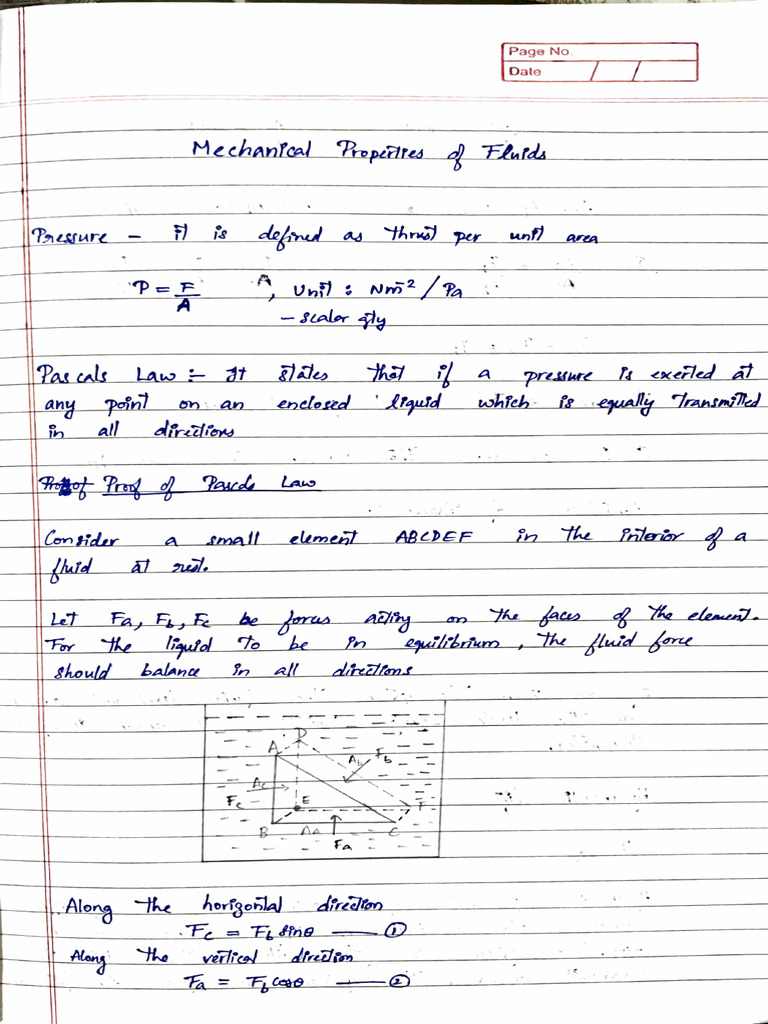 Page No.
Date / /
Mechanical Properties of Fluids
Pressure - it is defined as thrust per unit area
P = F/A A, Unit : Nm⁻² / Pa
- scalar qty
Pascals Law :- It states that if a pressure is exerted at
any point on an enclosed liquid which is equally transmitted
in all directions
Proof of Pascals Law
Consider a small element ABCDEF in the interior of a
fluid at rest.
Let Fa, Fb, Fc be forces acting on the faces of the element.
For the liquid to be in equilibrium, the fluid force
should balance in all directions
D
A Ab Fb
Ac
Fc E F
B Aa C
Fa
Along the horizontal direction
Fc = Fb sinθ —— ①
Along the vertical direction
Fa = Fb cosθ —— ②